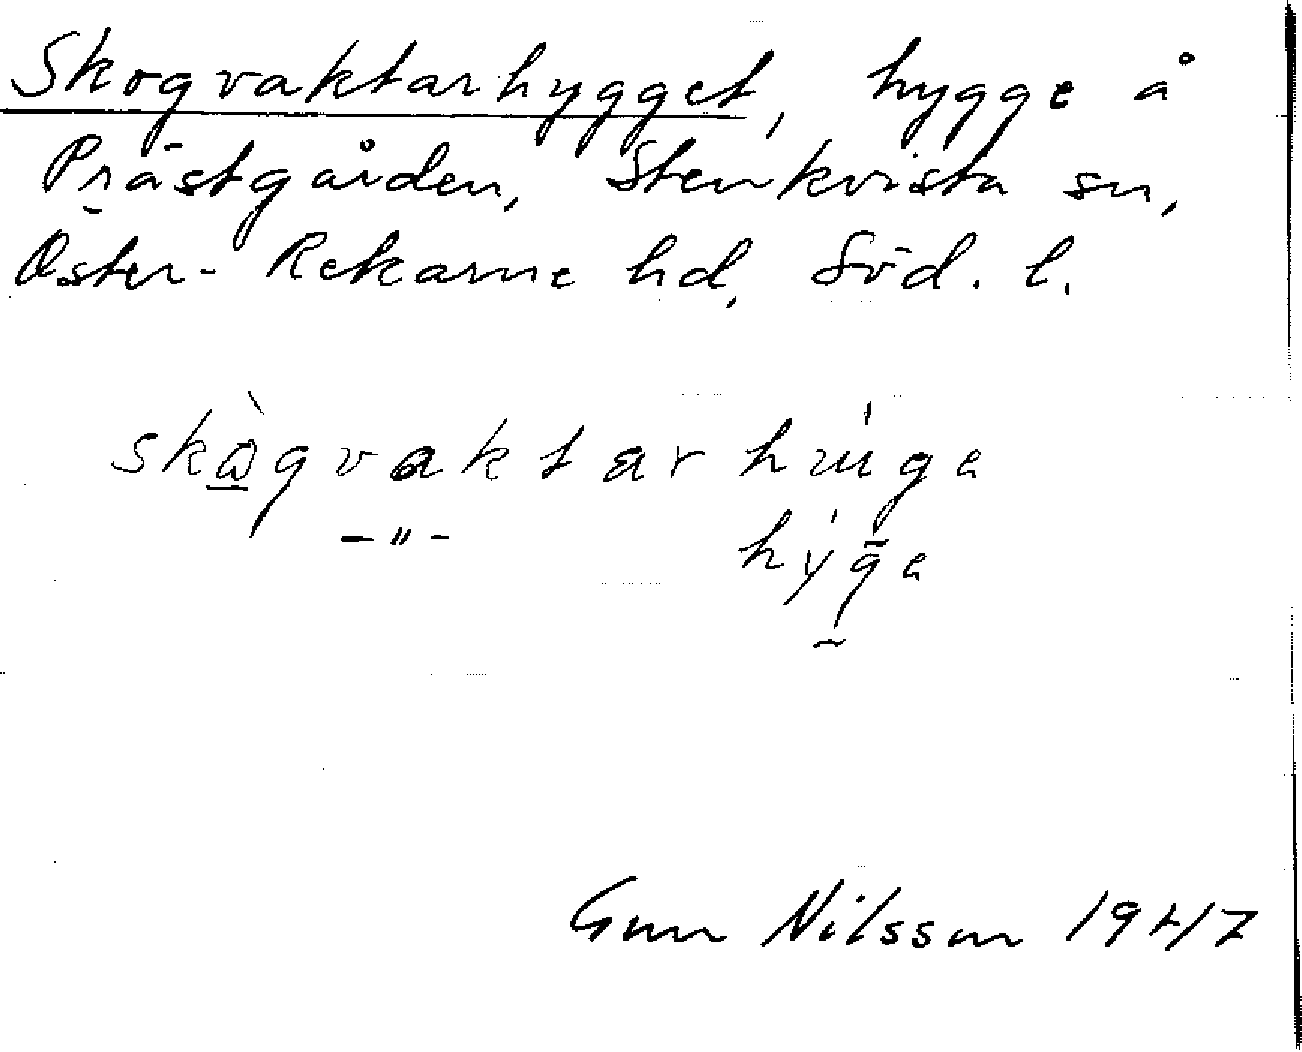 Skogvaktarhygget, hygge å
Prästgården, Stenkvista sn,
Öster-Rekarne hd, Söd. l.
skògvaktar
-"- hýga
Gun Nilsson 1947